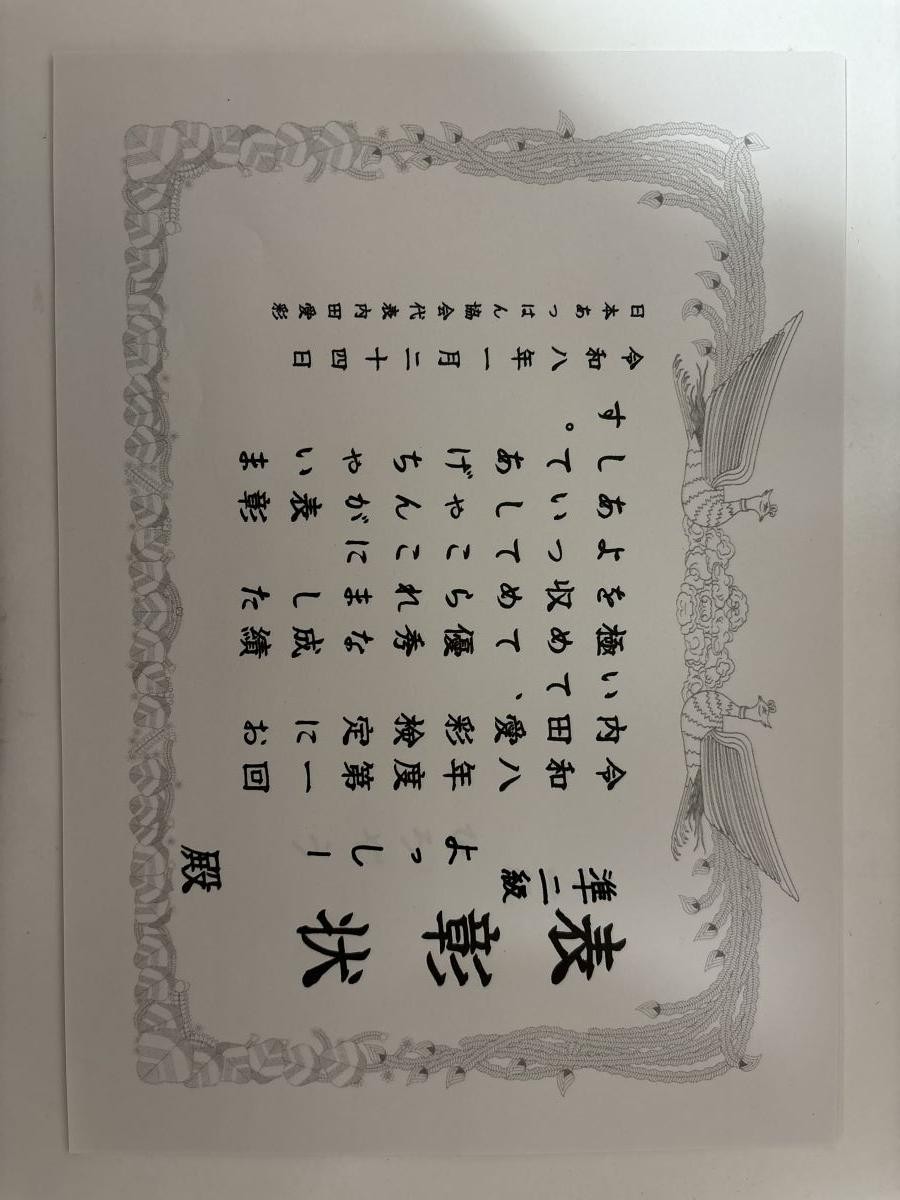 表彰状
準二級
よっしー 殿
令和八年度第一回
内田愛彩検定にお
いて、
極めて優秀な成績
を収められました
よってここに
あいしゃんが表彰
してあげちゃいま
す。
令和八年一月二十四日
日本あっはん協会代表内田愛彩